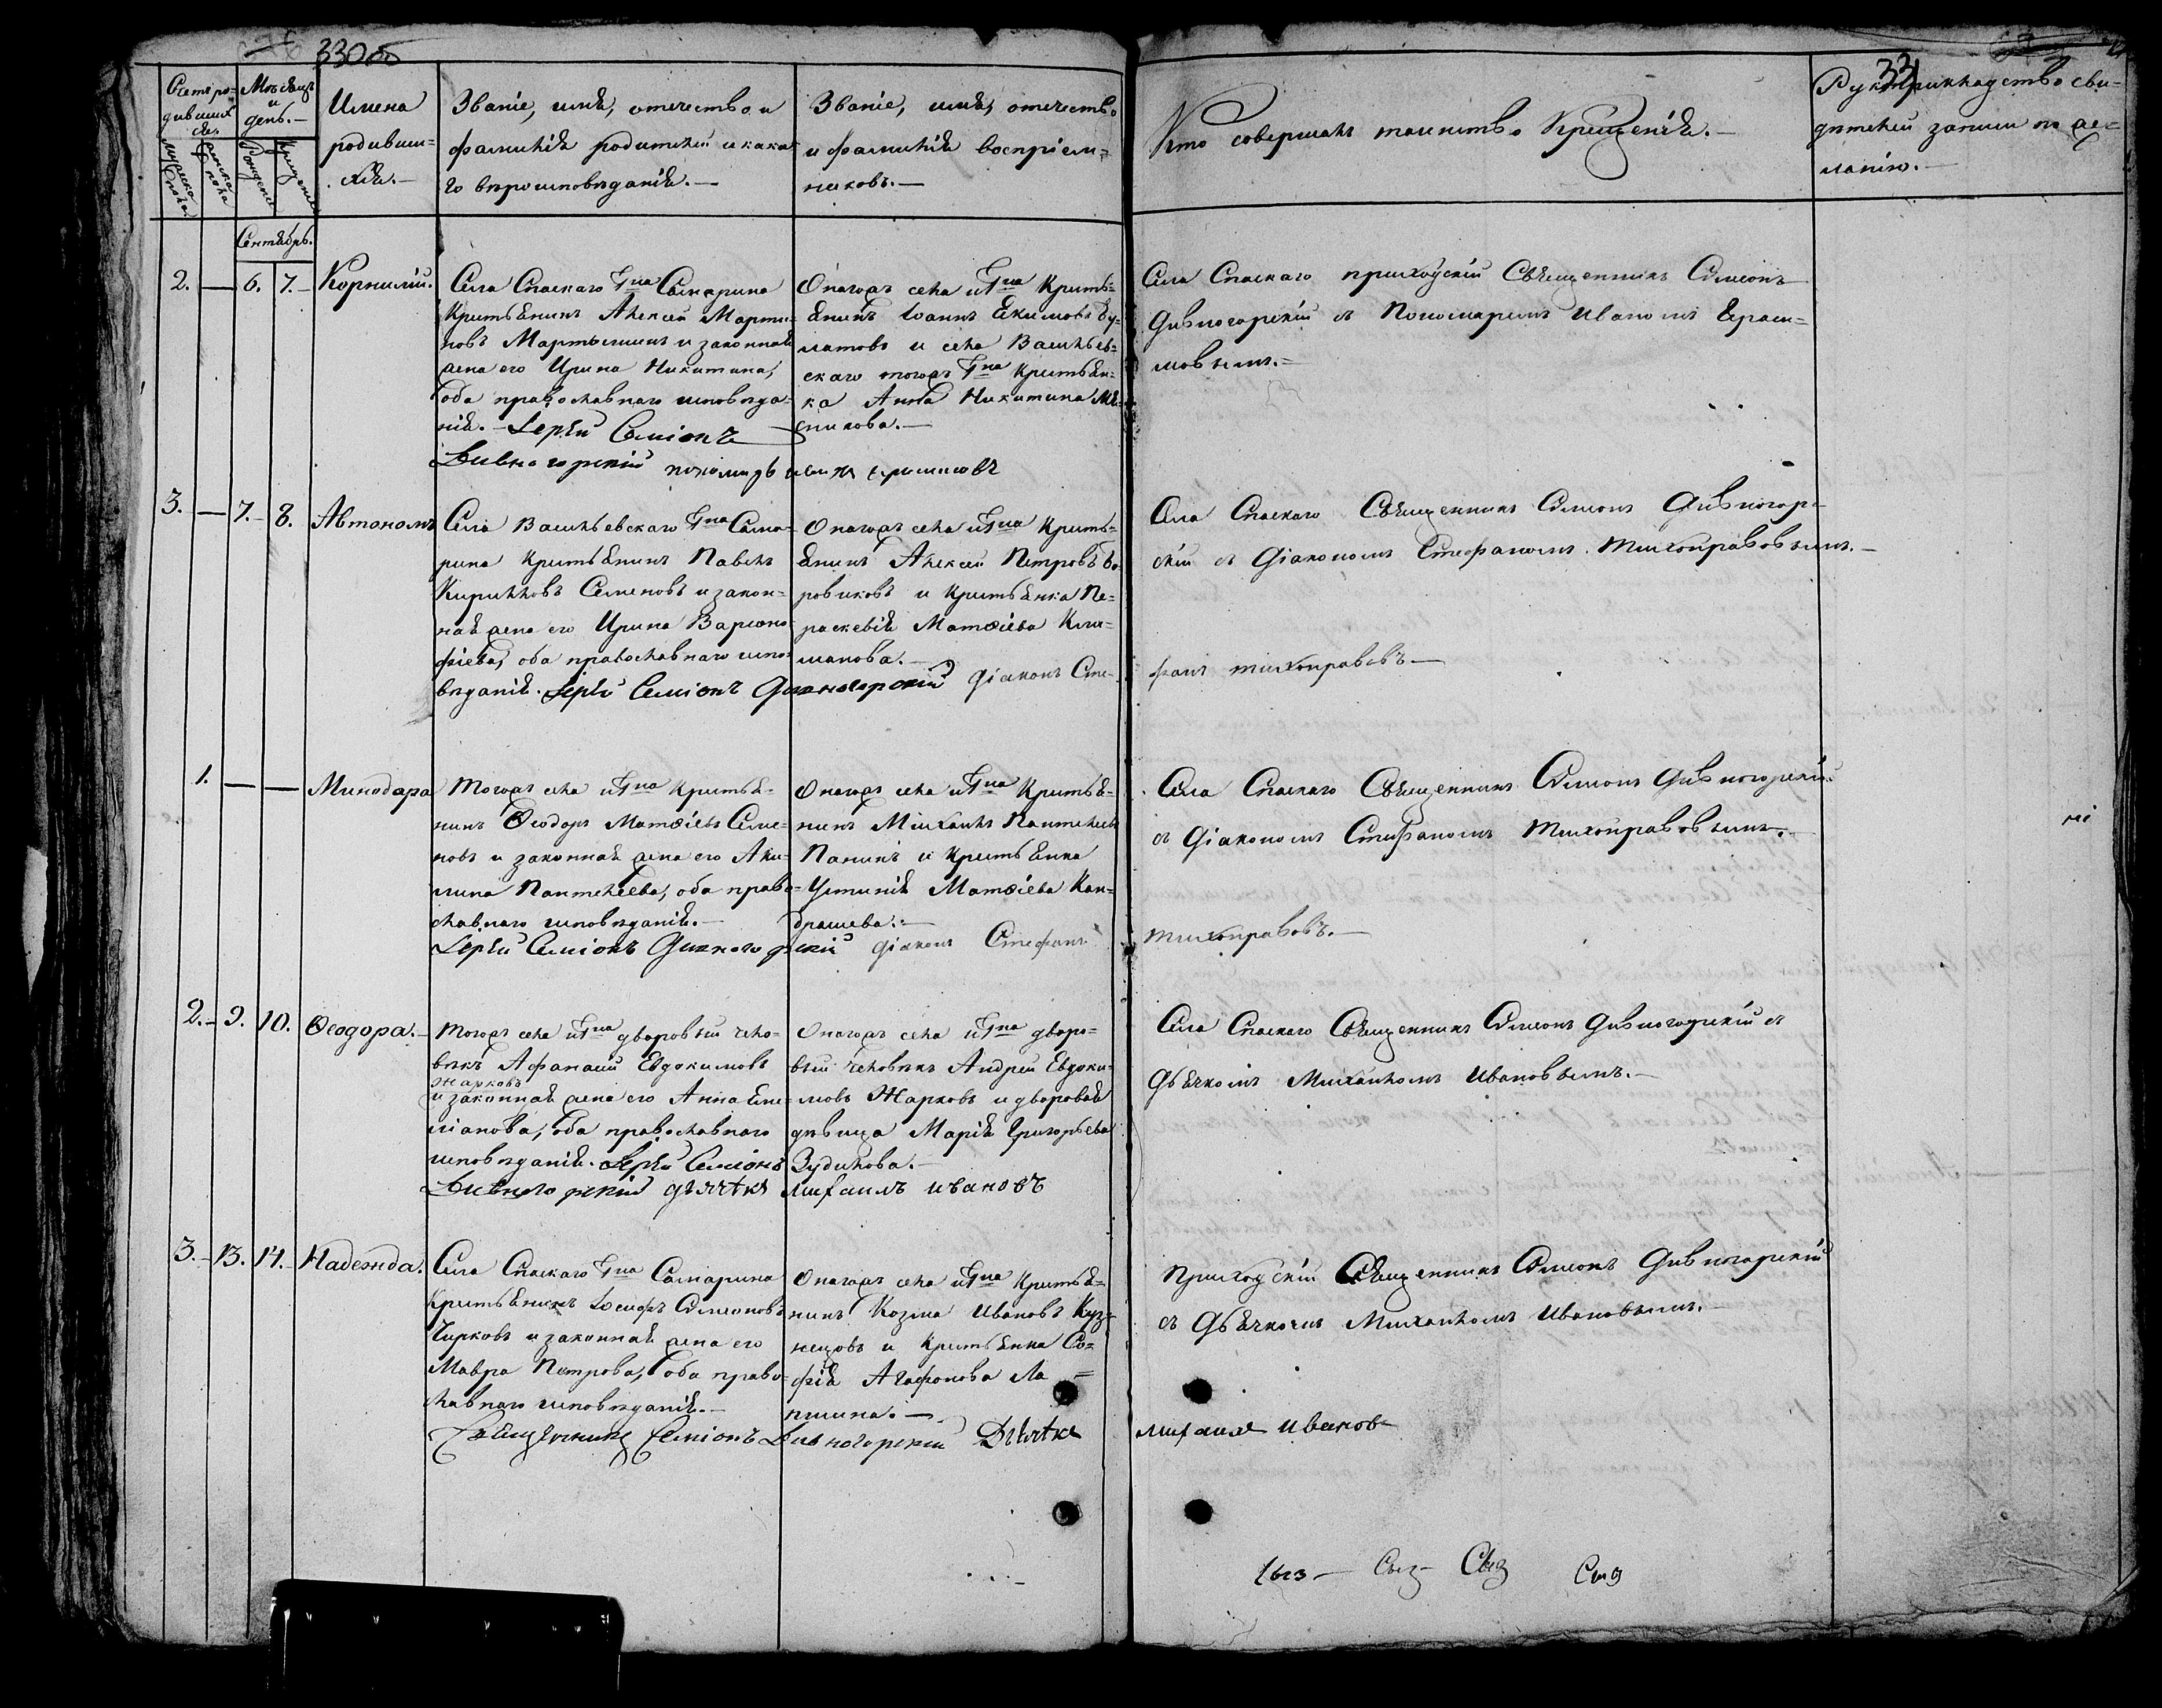 330об
33
Счетъ ро-
дившихся.
Мужеска пола
Женска пола
Мѣсяцъ
и
день.-
Рожденіе
Крещеніе
Имена
родивши-
хся.-
Званіе, имя, отечество и
фамилія родителей и како-
го вѣроисповѣданія.-
Званіе, имя, отечество
и фамилія воспріем-
никовъ.-
Кто совершалъ таинство Крещенія.-
Рукоприкладство сви-
дѣтелей записи по же-
ланію.-
Сентябрь.
2. — 6. 7.- Корнилій.
Села Спаскаго Гна Самарина
Крестьянинъ Алексей Марты-
новъ Мартышинъ и законная
жена его Ирина Никитина,
оба православнаго исповѣда-
нія.- Іерѣй Семіонъ
Дивногорскій пономарь иванъ ерасимовъ
Онагожъ села и Гна Кресть-
янинъ Іоаннъ Екимовъ Бу-
латовъ и села Васильев-
скаго тогожъ Гна Крестьян-
ка Анна Никитина Мя-
сникова.-
Села Спаскаго приходскій Священникъ Симеонъ
Дивногорскій съ Пономаремъ Иваномъ Ераси-
мовымъ.-
3. — 7.- 8. Автономъ
Села Васильевскаго Гна Сама-
рина Крестьянинъ Павелъ
Кирилловъ Семеновъ и закон-
ная жена его Ирина Варсоно-
фіева, оба православнаго испо-
вѣданія. Іерѣй Семіонъ Дивногорскій діаконъ Сте-
Онагожъ села и Гна Кресть-
янинъ Алексей Петровъ Бо-
ровиковъ и Крестьянка Па-
раскевія Матѳіева Кли-
манова.-
Села Спаскаго Священникъ Симеонъ Дивногор-
скій съ Діакономъ Стефаномъ Тихонравовымъ.-
фанъ тихонравовъ-
1. — — Минодара
Тогожъ села и Гна Крестья-
нинъ Ѳеодоръ Матѳіевъ Семе-
новъ и законная жена его Аки-
лина Пантелеева, оба право-
славнаго исповѣданія.-
Іерѣй Семіонъ Дивногорскій діаконъ Стефанъ
Онагожъ села и Гна Крестья-
нинъ Михаилъ Пантелеевъ
Панинъ и Крестьянка
Устинія Матѳіева Кан-
драшева.-
Села Спаскаго Священникъ Симеонъ Дивногорскій
съ Діакономъ Стефаномъ Тихонравовымъ.-
тихонравовъ.-
2.- 9. 10. Ѳеодора.-
Тогожъ села и Гна дворовый чело-
вѣкъ Афанасій Евдокимовъ
Жарковъ
и законная жена его Анна Еме-
ліанова, оба православнаго
исповѣданія. Іерѣй Семіонъ
Дивногорскій дьячекъ михаилъ ивановъ
Онагожъ села и Гна дворо-
вый человѣкъ Андрей Евдоки-
мовъ Жарковъ и дворовая
дѣвица Марія Григорьева
Зудилова.-
Села Спаскаго Священникъ Симеонъ Дивногорскій съ
Дьячкомъ Михаиломъ Ивановымъ.-
3.- 13. 14.- Надежда.
Села Спаскаго Гна Самарина
Крестьянинъ Іосифъ Симеоновъ
Чирковъ и законная жена его
Мавра Петрова, оба право-
славнаго исповѣданія.-
Священникъ Семіонъ Дивногорскій Дьячекъ
Онагожъ села и Гна Крестья-
нинъ Козма Ивановъ Куз-
нецовъ и Крестьянка Со-
фія Агафонова Ла-
пшина.-
Приходскій Священникъ Симеонъ Дивногорскій
съ Дьячкомъ Михаиломъ Ивановымъ.-
михаилъ ивановъ